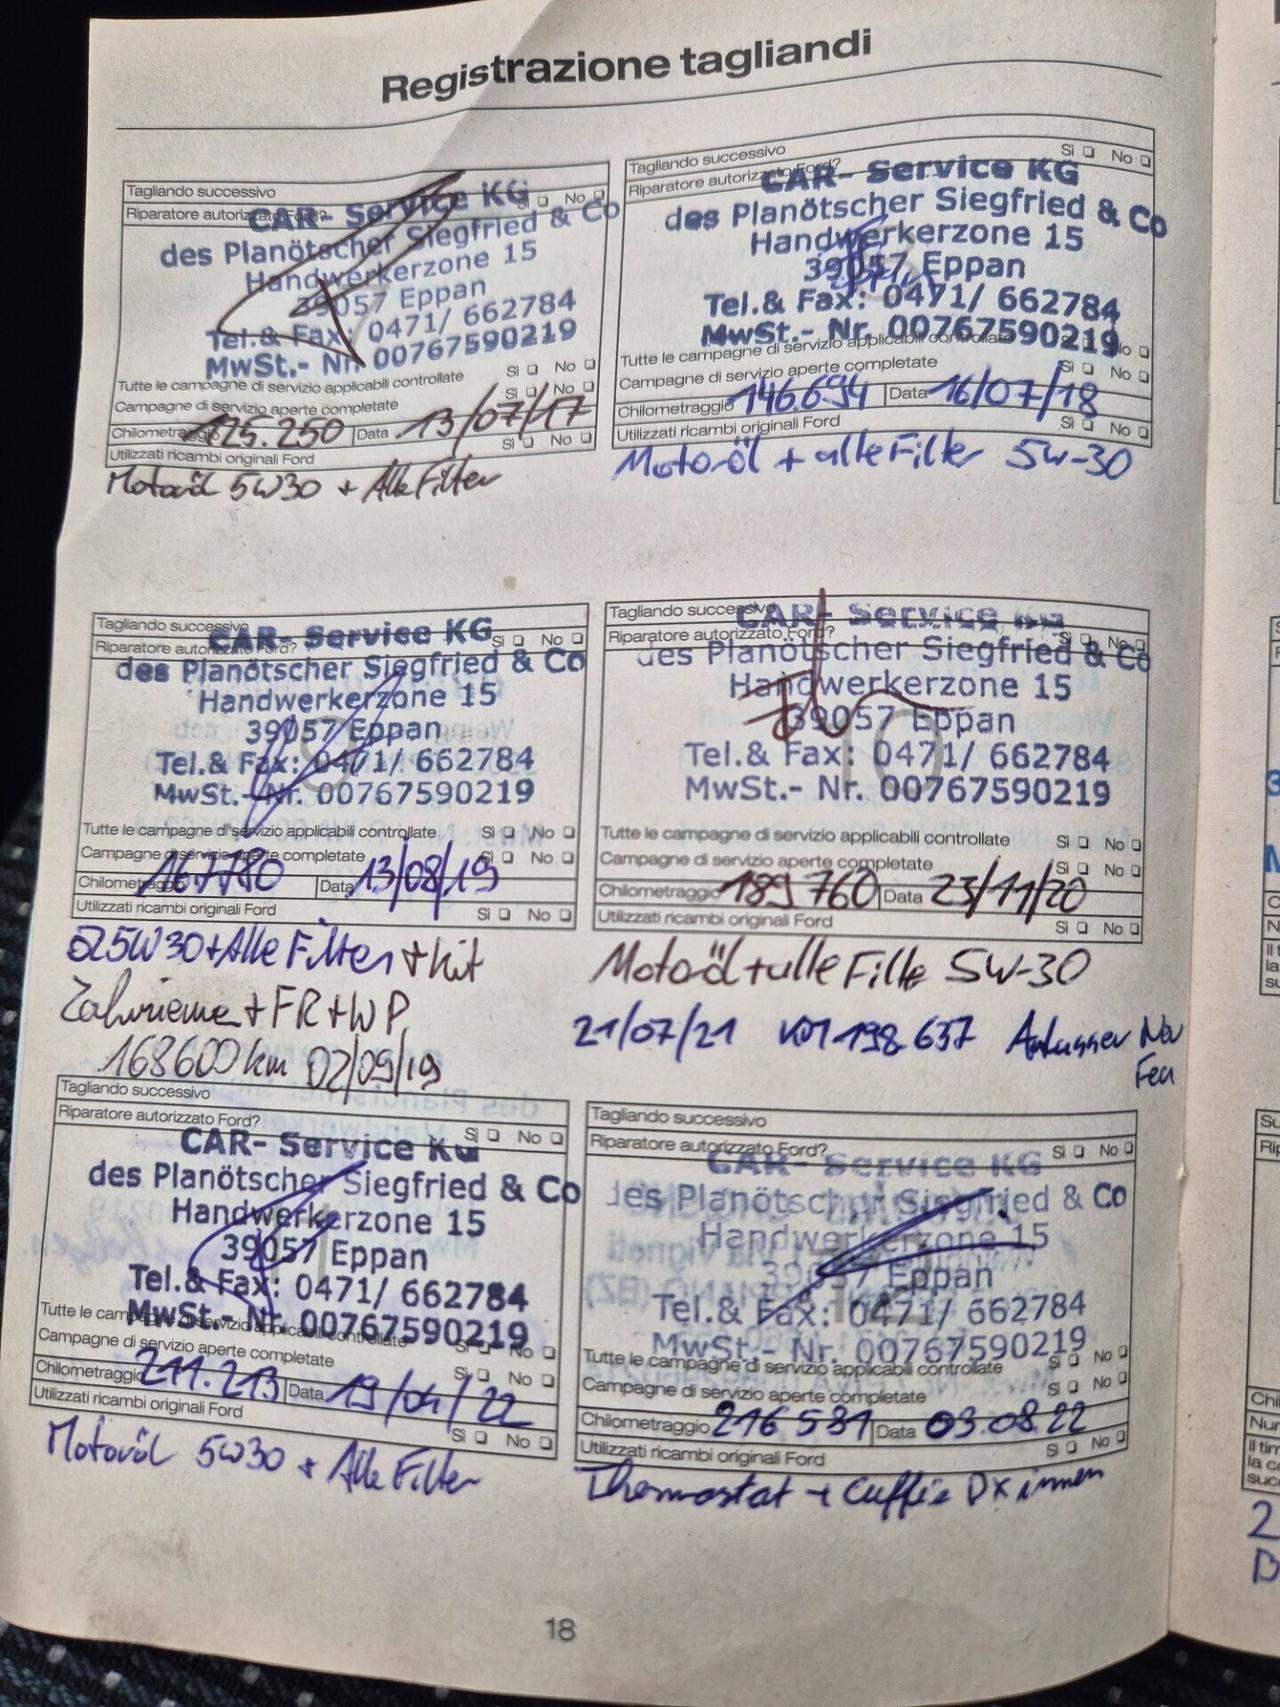 Registrazione tagliandi
Tagliando successivo
Riparatore autorizzato Ford? Sì ❏ No ❏
CAR- Service KG
des Planötscher Siegfried & Co
Handwerkerzone 15
39057 Eppan
Tel.& Fax: 0471/ 662784
MwSt.- Nr. 00767590219
Tutte le campagne di servizio applicabili controllate Sì ❏ No ❏
Campagne di servizio aperte completate Sì ❏ No ❏
Chilometraggio 125.250 Data 13/07/17
Utilizzati ricambi originali Ford Sì ❏ No ❏
Motoröl 5W30 + Alle Filter
Tagliando successivo Sì ❏ No ❏
Riparatore autorizzato Ford?
CAR- Service KG
des Planötscher Siegfried & Co
Handwerkerzone 15
39057 Eppan
Tel.& Fax: 0471/ 662784
MwSt.- Nr. 00767590219
Tutte le campagne di servizio applicabili controllate No ❏
Campagne di servizio aperte completate Sì ❏ No ❏
Chilometraggio 146.694 Data 16/07/18
Utilizzati ricambi originali Ford Sì ❏ No ❏
Motoröl + alle Filter 5W-30
Tagliando successivo
Riparatore autorizzato Ford? Sì ❏ No ❏
CAR- Service KG
des Planötscher Siegfried & Co
Handwerkerzone 15
39057 Eppan
Tel.& Fax: 0471/ 662784
MwSt.- Nr. 00767590219
Tutte le campagne di servizio applicabili controllate Sì ❏ No ❏
Campagne di servizio aperte completate Sì ❏ No ❏
Chilometraggio 167780 Data 13/08/19
Utilizzati ricambi originali Ford Sì ❏ No ❏
Öl 5W30 + Alle Filter + Kit
Zahnrieme + FR + WP
168600 km 02/09/19
Tagliando successivo
Riparatore autorizzato Ford? Sì ❏ No ❏
CAR- Service KG
des Planötscher Siegfried & Co
Handwerkerzone 15
39057 Eppan
Tel.& Fax: 0471/ 662784
MwSt.- Nr. 00767590219
10
Tutte le campagne di servizio applicabili controllate Sì ❏ No ❏
Campagne di servizio aperte completate Sì ❏ No ❏
Chilometraggio 189760 Data 23/11/20
Utilizzati ricambi originali Ford Sì ❏ No ❏
Motoröl + alle Filter 5W-30
21/07/21 KM 198.637
Tagliando successivo
Riparatore autorizzato Ford? Sì ❏ No ❏
CAR- Service KG
des Planötscher Siegfried & Co
Handwerkerzone 15
39057 Eppan
Tel.& Fax: 0471/ 662784
MwSt.- Nr. 00767590219
Tutte le campagne di servizio applicabili controllate Sì ❏ No ❏
Campagne di servizio aperte completate Sì ❏ No ❏
Chilometraggio 211.213 Data 19/04/22
Utilizzati ricambi originali Ford Sì ❏ No ❏
Motoröl 5W30 + Alle Filter
Tagliando successivo
Riparatore autorizzato Ford? Sì ❏ No ❏
CAR- Service KG
des Planötscher Siegfried & Co
Handwerkerzone 15
39057 Eppan
Tel.& Fax: 0471/ 662784
MwSt.- Nr. 00767590219
Tutte le campagne di servizio applicabili controllate Sì ❏ No ❏
Campagne di servizio aperte completate Sì ❏ No ❏
Chilometraggio 216531 Data 03.08.22
Utilizzati ricambi originali Ford Sì ❏ No ❏
Thermostat + Cuffie DX innen
18